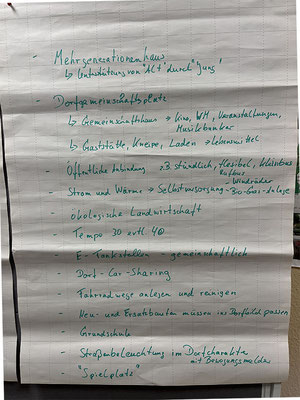 - Mehrgenerationenhaus
↳ Unterstützung von "Alt" durch "Jung"
- Dorfgemeinschaftsplatz
↳ Gemeinschaftshaus → Kino, WH, Veranstaltungen,
Musikbunker
↳ Gaststätte, Kneipe, Laden → Lebensmittel
- Öffentliche Anbindung z.B stündlich, flexibel, Kleinbus
Rufbus
- Windräder
- Strom und Wärme → Selbstversorgung - Bio-Gas-Anlage
- ökologische Landwirtschaft
- Tempo 30 evtl. 40
- E-Tankstellen - gemeinschaftlich
- Dorf-Car-Sharing
- Fahrradwege anlegen und reinigen
- Neu- und Ersatzbauten müssen ins Dorfbild passen
- Grundschule
- Straßenbeleuchtung im Dorfcharakter
mit Bewegungsmelder
- "Spielplatz"